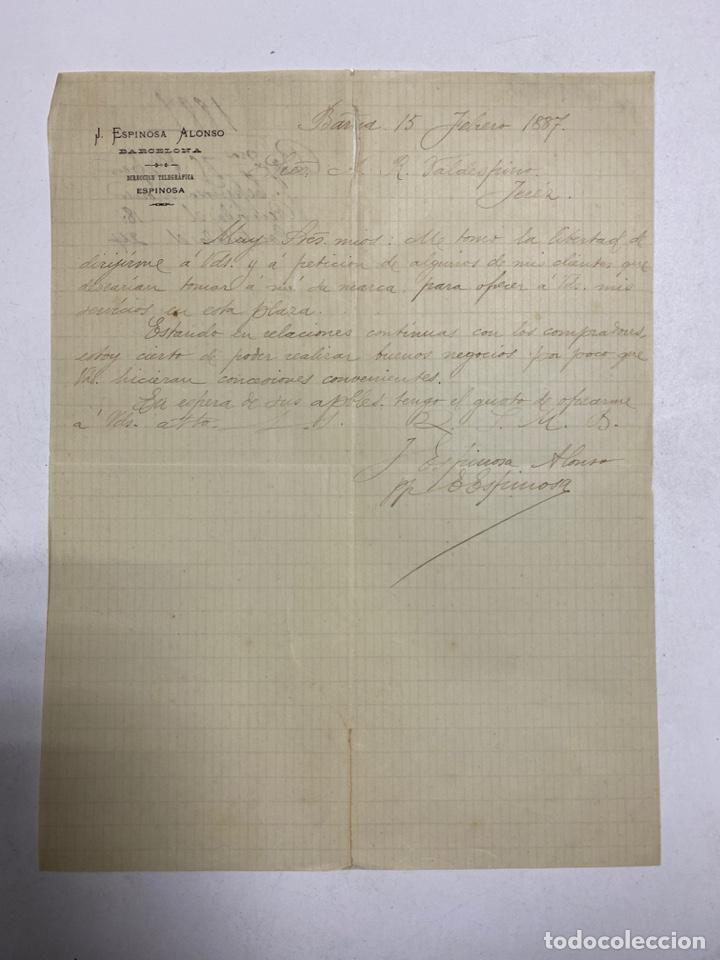 J. ESPINOSA ALONSO
BARCELONA
DIRECCION TELEGRÁFICA
ESPINOSA
Barna 15 Febrero 1887.
Sres. A. R. Valdespino.
Jeréz.
Muy Sres. mios: Me tomo la libertad de
dirijirme á Vds. y á peticion de algunos de mis clientes que
desearian tomar á mi su marca, para ofrecer á Vds. mis
servicios en esta plaza.
Estando en relaciones continuas con los compradores,
estoy cierto de poder realizar buenos negocios por poco que
Vds. hicieran conceciones convenientes.
En espera de sus apbles. tengo el gusto de ofrecerme
á Vds. atto. S. S. Q. S. M. B.
J Espinosa Alonso
pp E Espinosa
1887
todocoleccion
todocoleccion.net